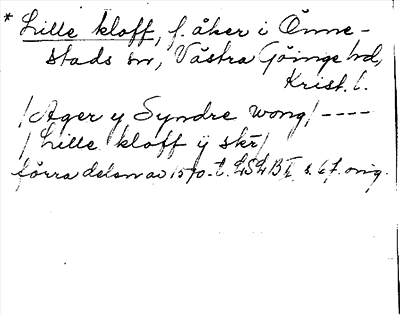 * Lille kloff, f. åker i Önne-
stads sn, Västra Göinge hd,
Krist. l.
/Ager y Syndre wong/ ----
/Lille kloff ÿ skr/
förra delen av 1570-t. LSLB II s. 67. orig.